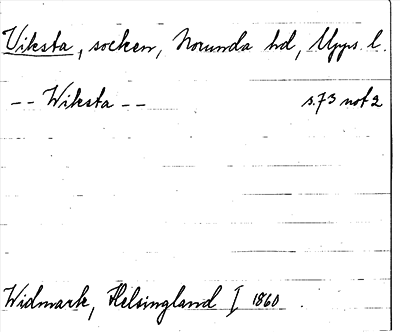 Viksta, socken, Norunda hd, Upps. l.
-- Wiksta -- s.73 not 2
Widmark, Helsingland I 1860 .